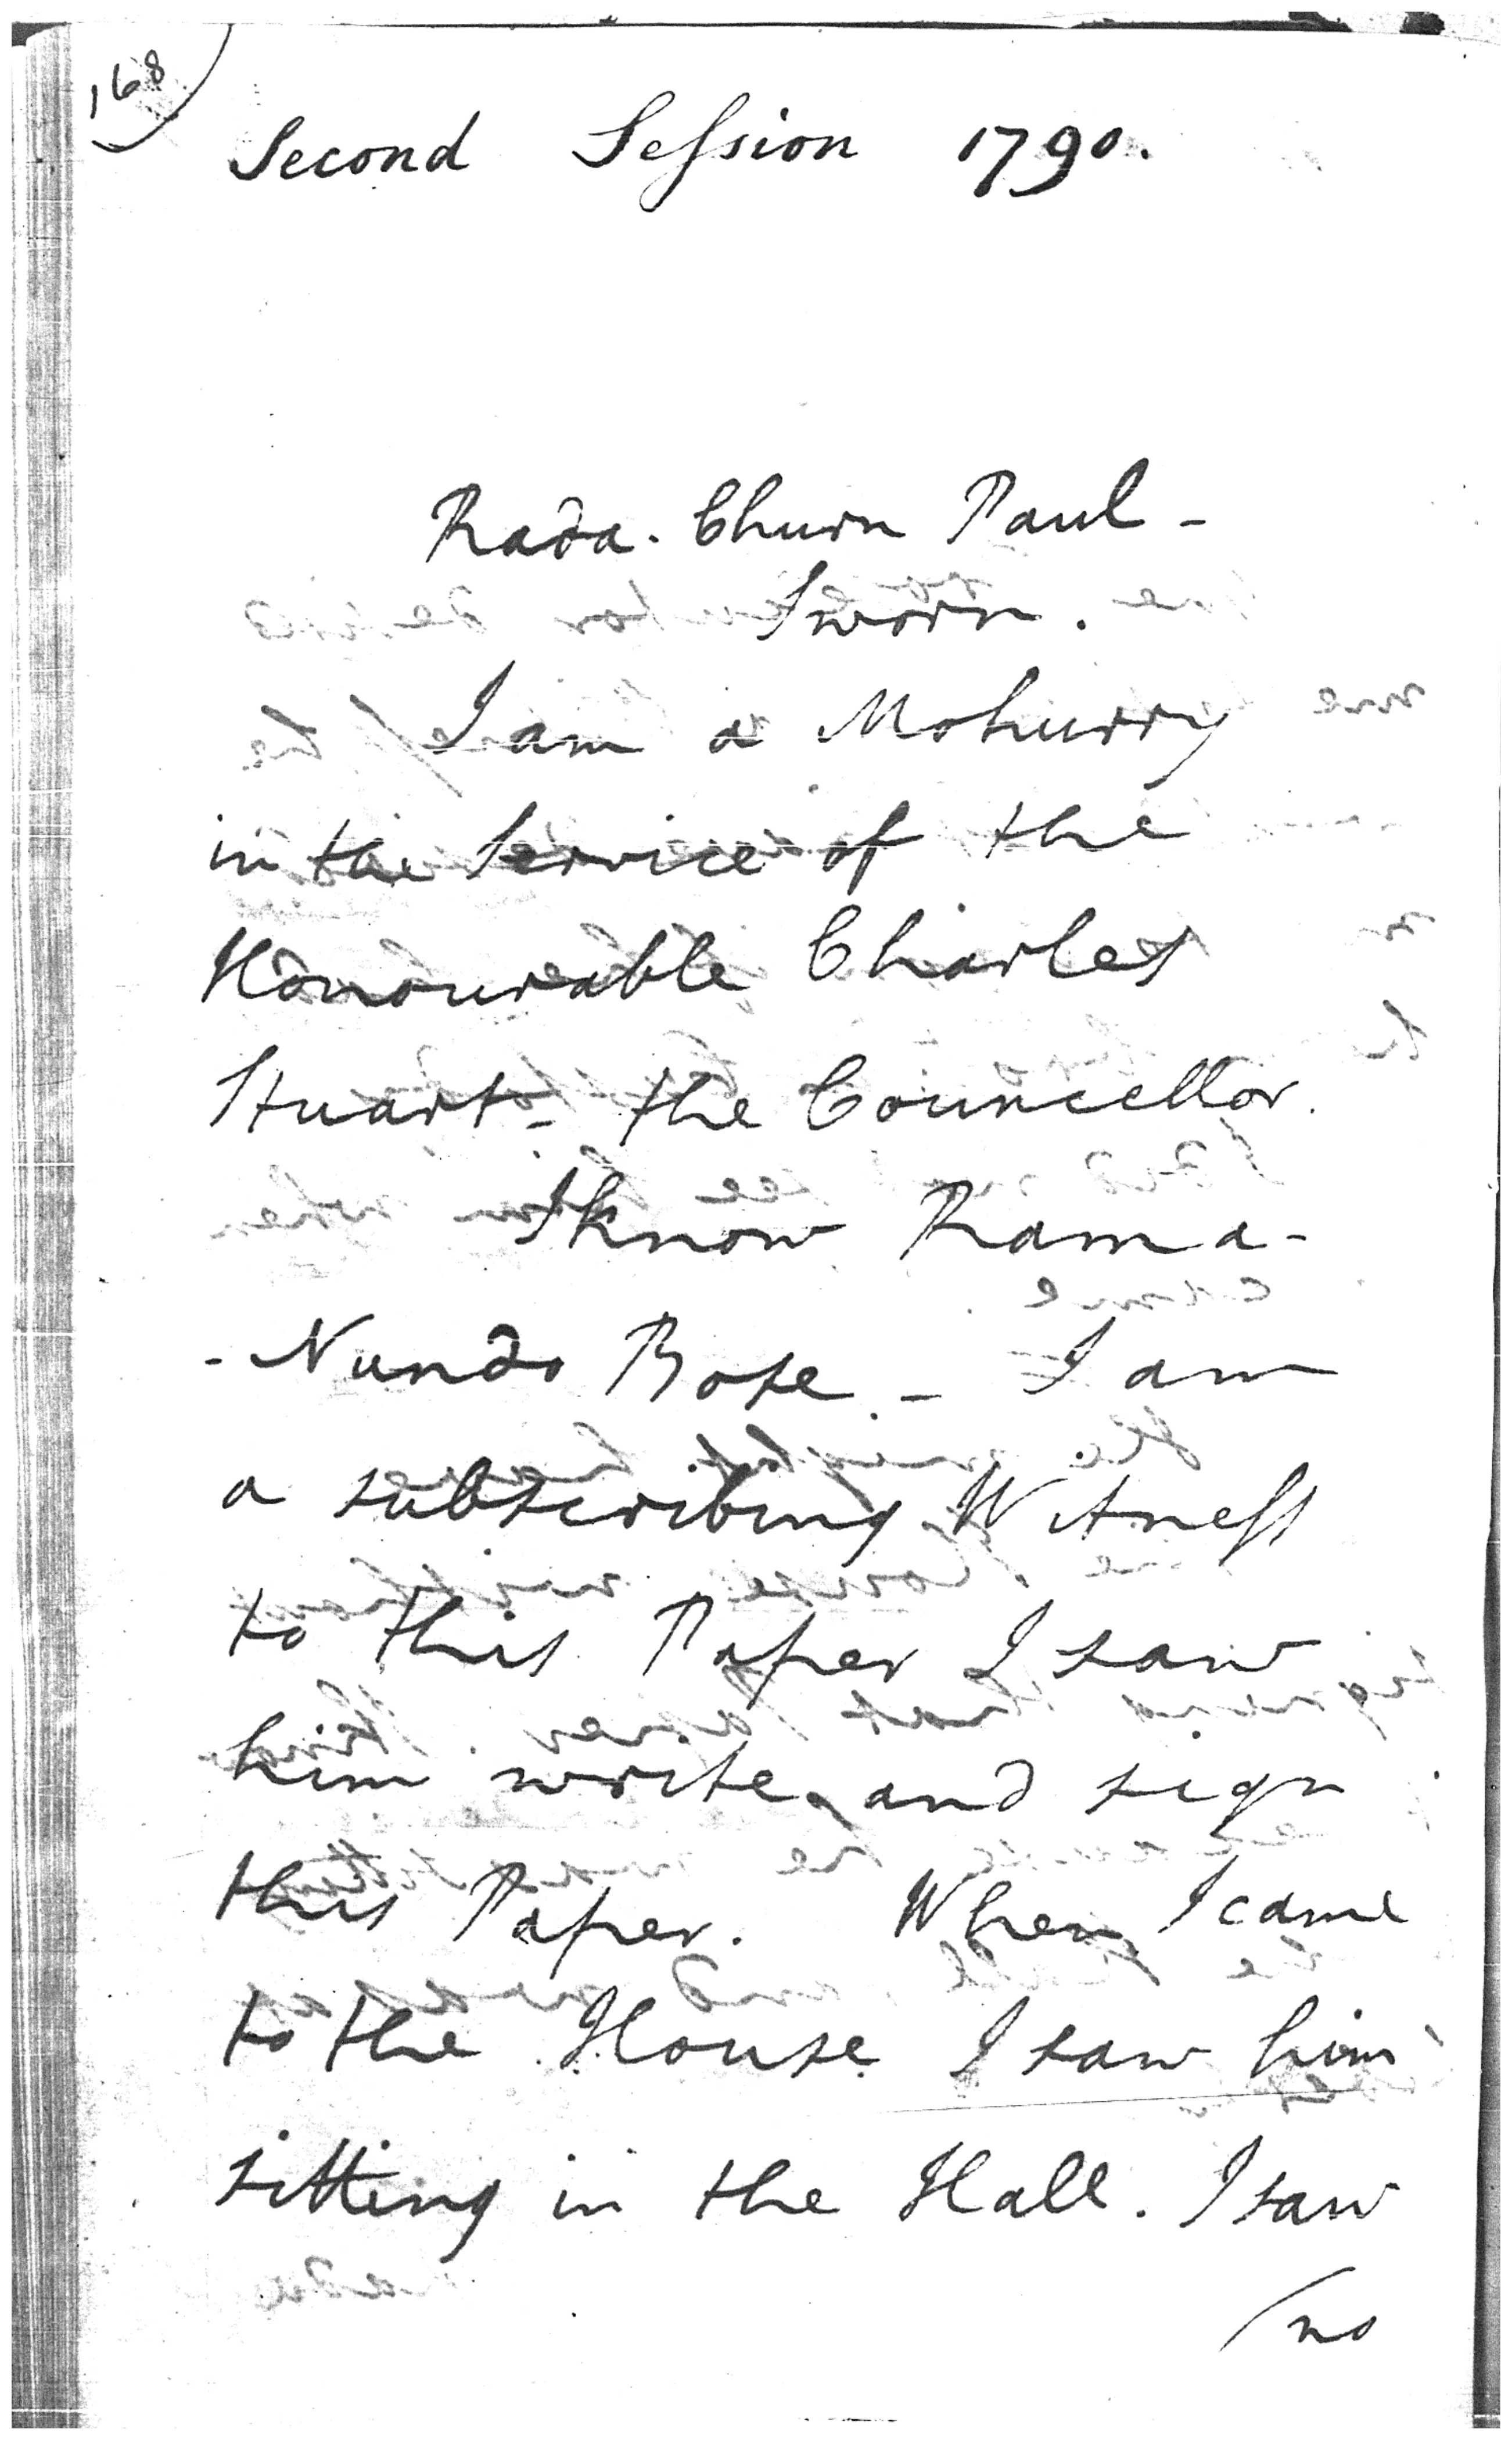 168
Second Session 1790.
Rada. Churn Paul -
Sworn.
I am a Mohurry
in the Service of the
Honourable Charles
Stuart - the Councellor.
I know Rama-
-Nundo Bose. - I am
a subscribing Witness
to this Paper I saw
him write and sign
this Paper. When I came
to the House I saw him
sitting in the Hall. I saw
no